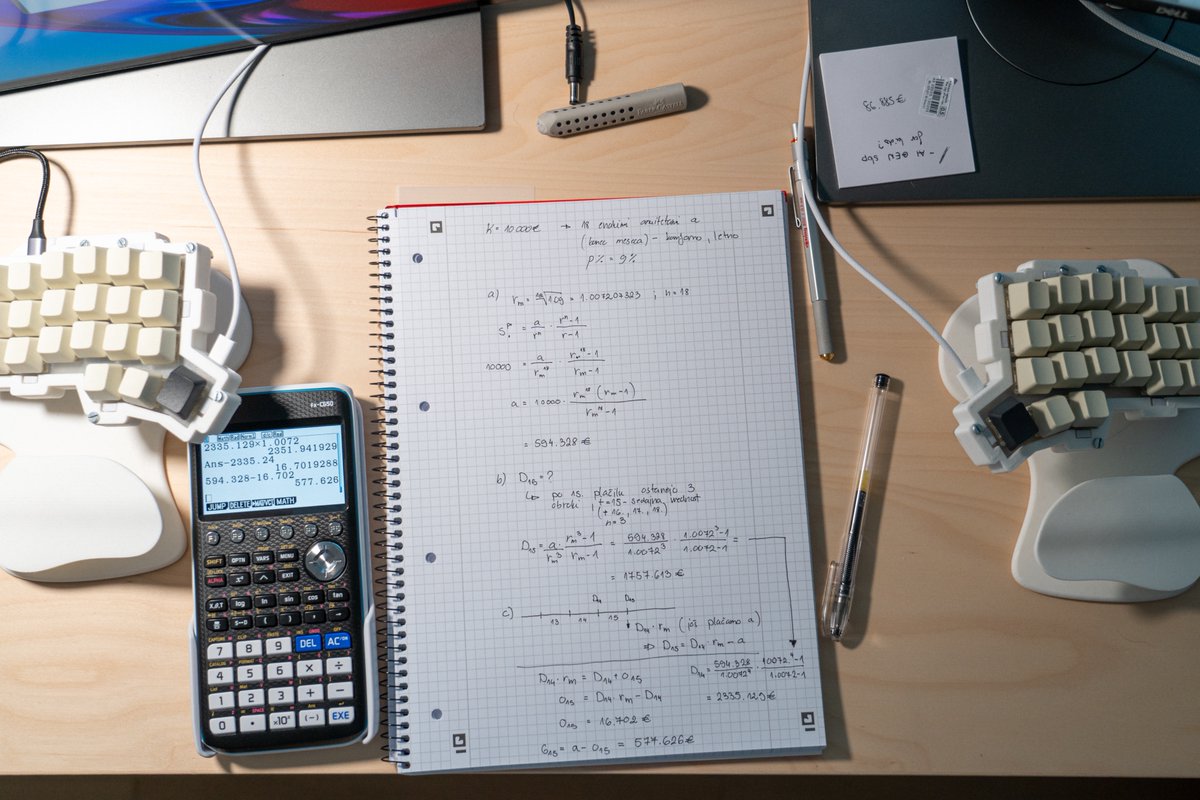 DELL
€ 588.93
- AI GEN sbp
FABER-CASTELL
K = 10.000€ → 18 enakimi anuitetami a
(konec meseca) - konformno, letno
p% = 9%
a) r_m = ¹²√1.09 = 1.007207323 ; n = 18
= a/rⁿ · (rⁿ-1)/(r-1)
10000 = a/r_m¹⁸ · (r_m¹⁸-1)/(r_m-1)
a = 10000 · r_m¹⁸ (r_m-1)/(r_m¹⁸-1)
= 594.328 €
b) D₁₅ = ?
↳ po 15. plačilu ostanejo 3
obroki | t=15 - sedajna vrednost
(+ 16., 17., 18.)
n=3
D₁₅ = a/r_m³ · (r_m³-1)/(r_m-1) = 594.328/1.0072³ · (1.0072³-1)/(1.0072-1) =
= 1757.613 €
c)
D₁₄ D₁₅
13 14 15
D₁₄ · r_m (još plačamo a)
⇒ D₁₅ = D₁₄ · r_m - a
D₁₄ · r_m = D₁₄ + o₁₅
o₁₅ = D₁₄ · r_m - D₁₄
o₁₅ = 16.702 €
G₁₅ = a - o₁₅ = 577.626 €
D₁₄ = 594.328/1.0072⁴ · (1.0072⁴-1)/(1.0072-1)
= 2335.129 €
fx-CG50
2335.129×1.0072
2351.941929
Ans-2335.24
16.7019288
594.328-16.702
577.626
JUMP DELETE ►MAT/VCT MATH
SHIFT OPTN VARS MENU
ALPHA x² ^ EXIT
X,θ,T log ln sin cos tan
S⇔D ( ) , →
7 8 9 DEL AC/ON
4 5 6 × ÷
1 2 3 + −
0 . ×10ˣ (−) EXE